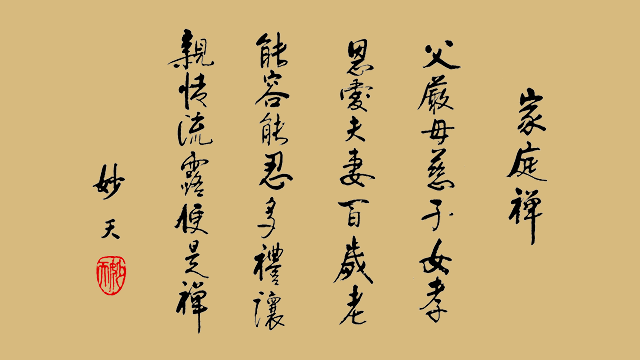 家庭禅
父嚴母慈子女孝
恩愛夫妻百歲老
能容能忍多禮讓
親情流露便是禪
妙天